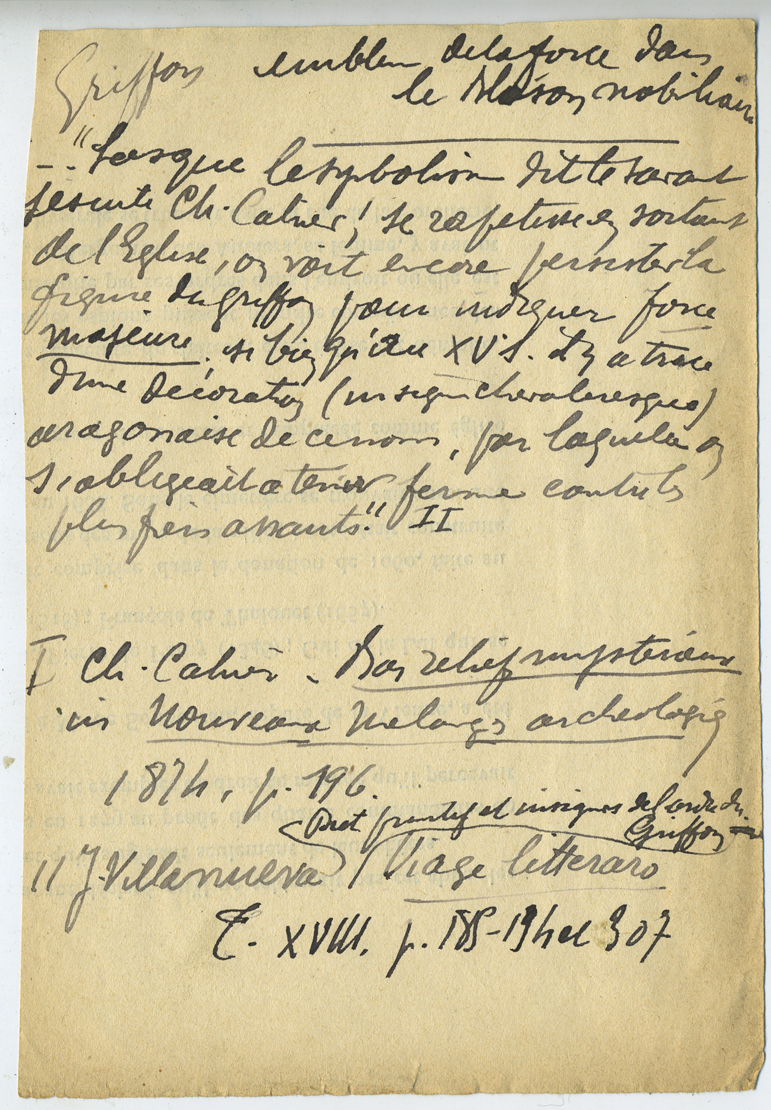 Griffon emblem de la force dans
le Blason nobiliaire
– "Lorsque le symbolism dit le savant
jésuite Ch. Cahier I se rapetisse en sortant
de l'Eglise, on voit encore persister la
figure du griffon pour indiquer force
majeure, si bien qu'au XV s. il y a trace
d'une décoration (insigne chevaleresque)
aragonaise de ce nom, par laquelle on
s'obligeait a tenir ferme contre les
plus fiers assauts." II
I Ch. Cahier – Bas relief mysterieux
in Nouveaux Mélanges archeologiq
1874, p. 196.
primitif et insignes de l'ordre du
Griffon
II J. Villanueva / Viage litteraro
T. XVIII. p. 185-194 et 307